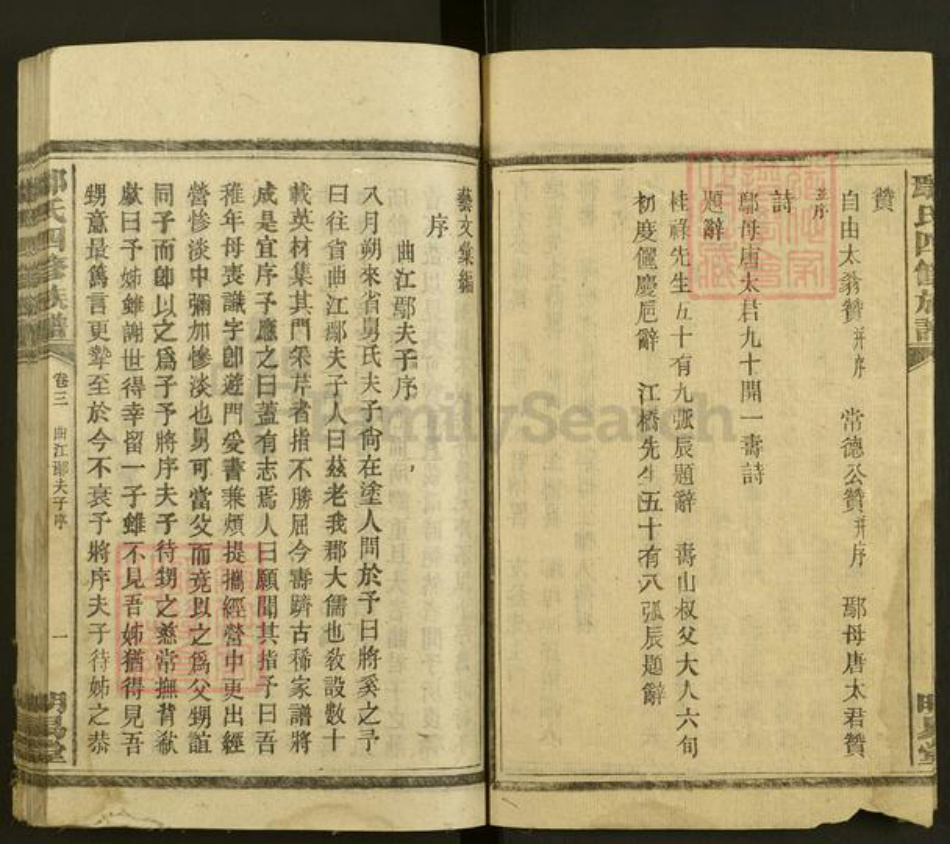 鄢氏四修族譜
明易堂
贊
自由太翁贊并序 常德公贊并序 鄢母唐太君贊
並序
詩
鄢母唐太君九十開一壽詩
題辭
桂祿先生五十有九弧辰題辭 壽山叔父大人六旬
初度儷慶巵辭 江橋先生五十有八弧辰題辭
藝文彙編
序
曲江鄢夫子序
八月朔來省舅氏夫子尙在塗人問於予曰將奚之予
曰往省曲江鄢夫子人曰茲老我郡大儒也敎設數十
載英材集其門采芹者指不勝屈今壽躋古稀家譜將
成是宜序子應之曰蓋有志焉人曰願聞其指予曰吾
稚年母喪識字卽遊門受書兼頻提攜經營中更出經
營慘淡中彌加慘淡也舅可當父而竟以之爲父甥誼
同子而卽以之爲子予將序夫子待甥之慈常撫背
歔曰予姊雖謝世得幸留一子雖不見吾姊猶得見吾
甥意最篤言更摯至於今不衰予將序夫子待姊之恭
鄢氏四修族譜
卷三 曲江鄢夫子序
一
明易堂
FamilySearch